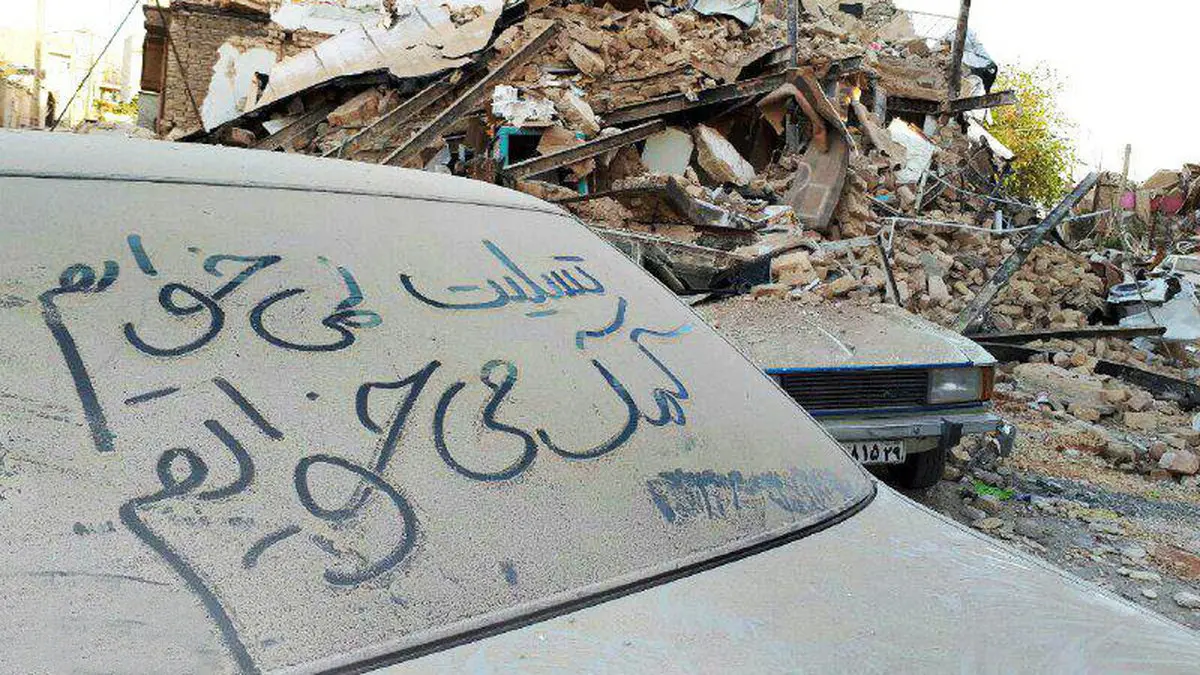 تسلیت نمی خوایم
کمک می خوایم
۸۱۵۲۹